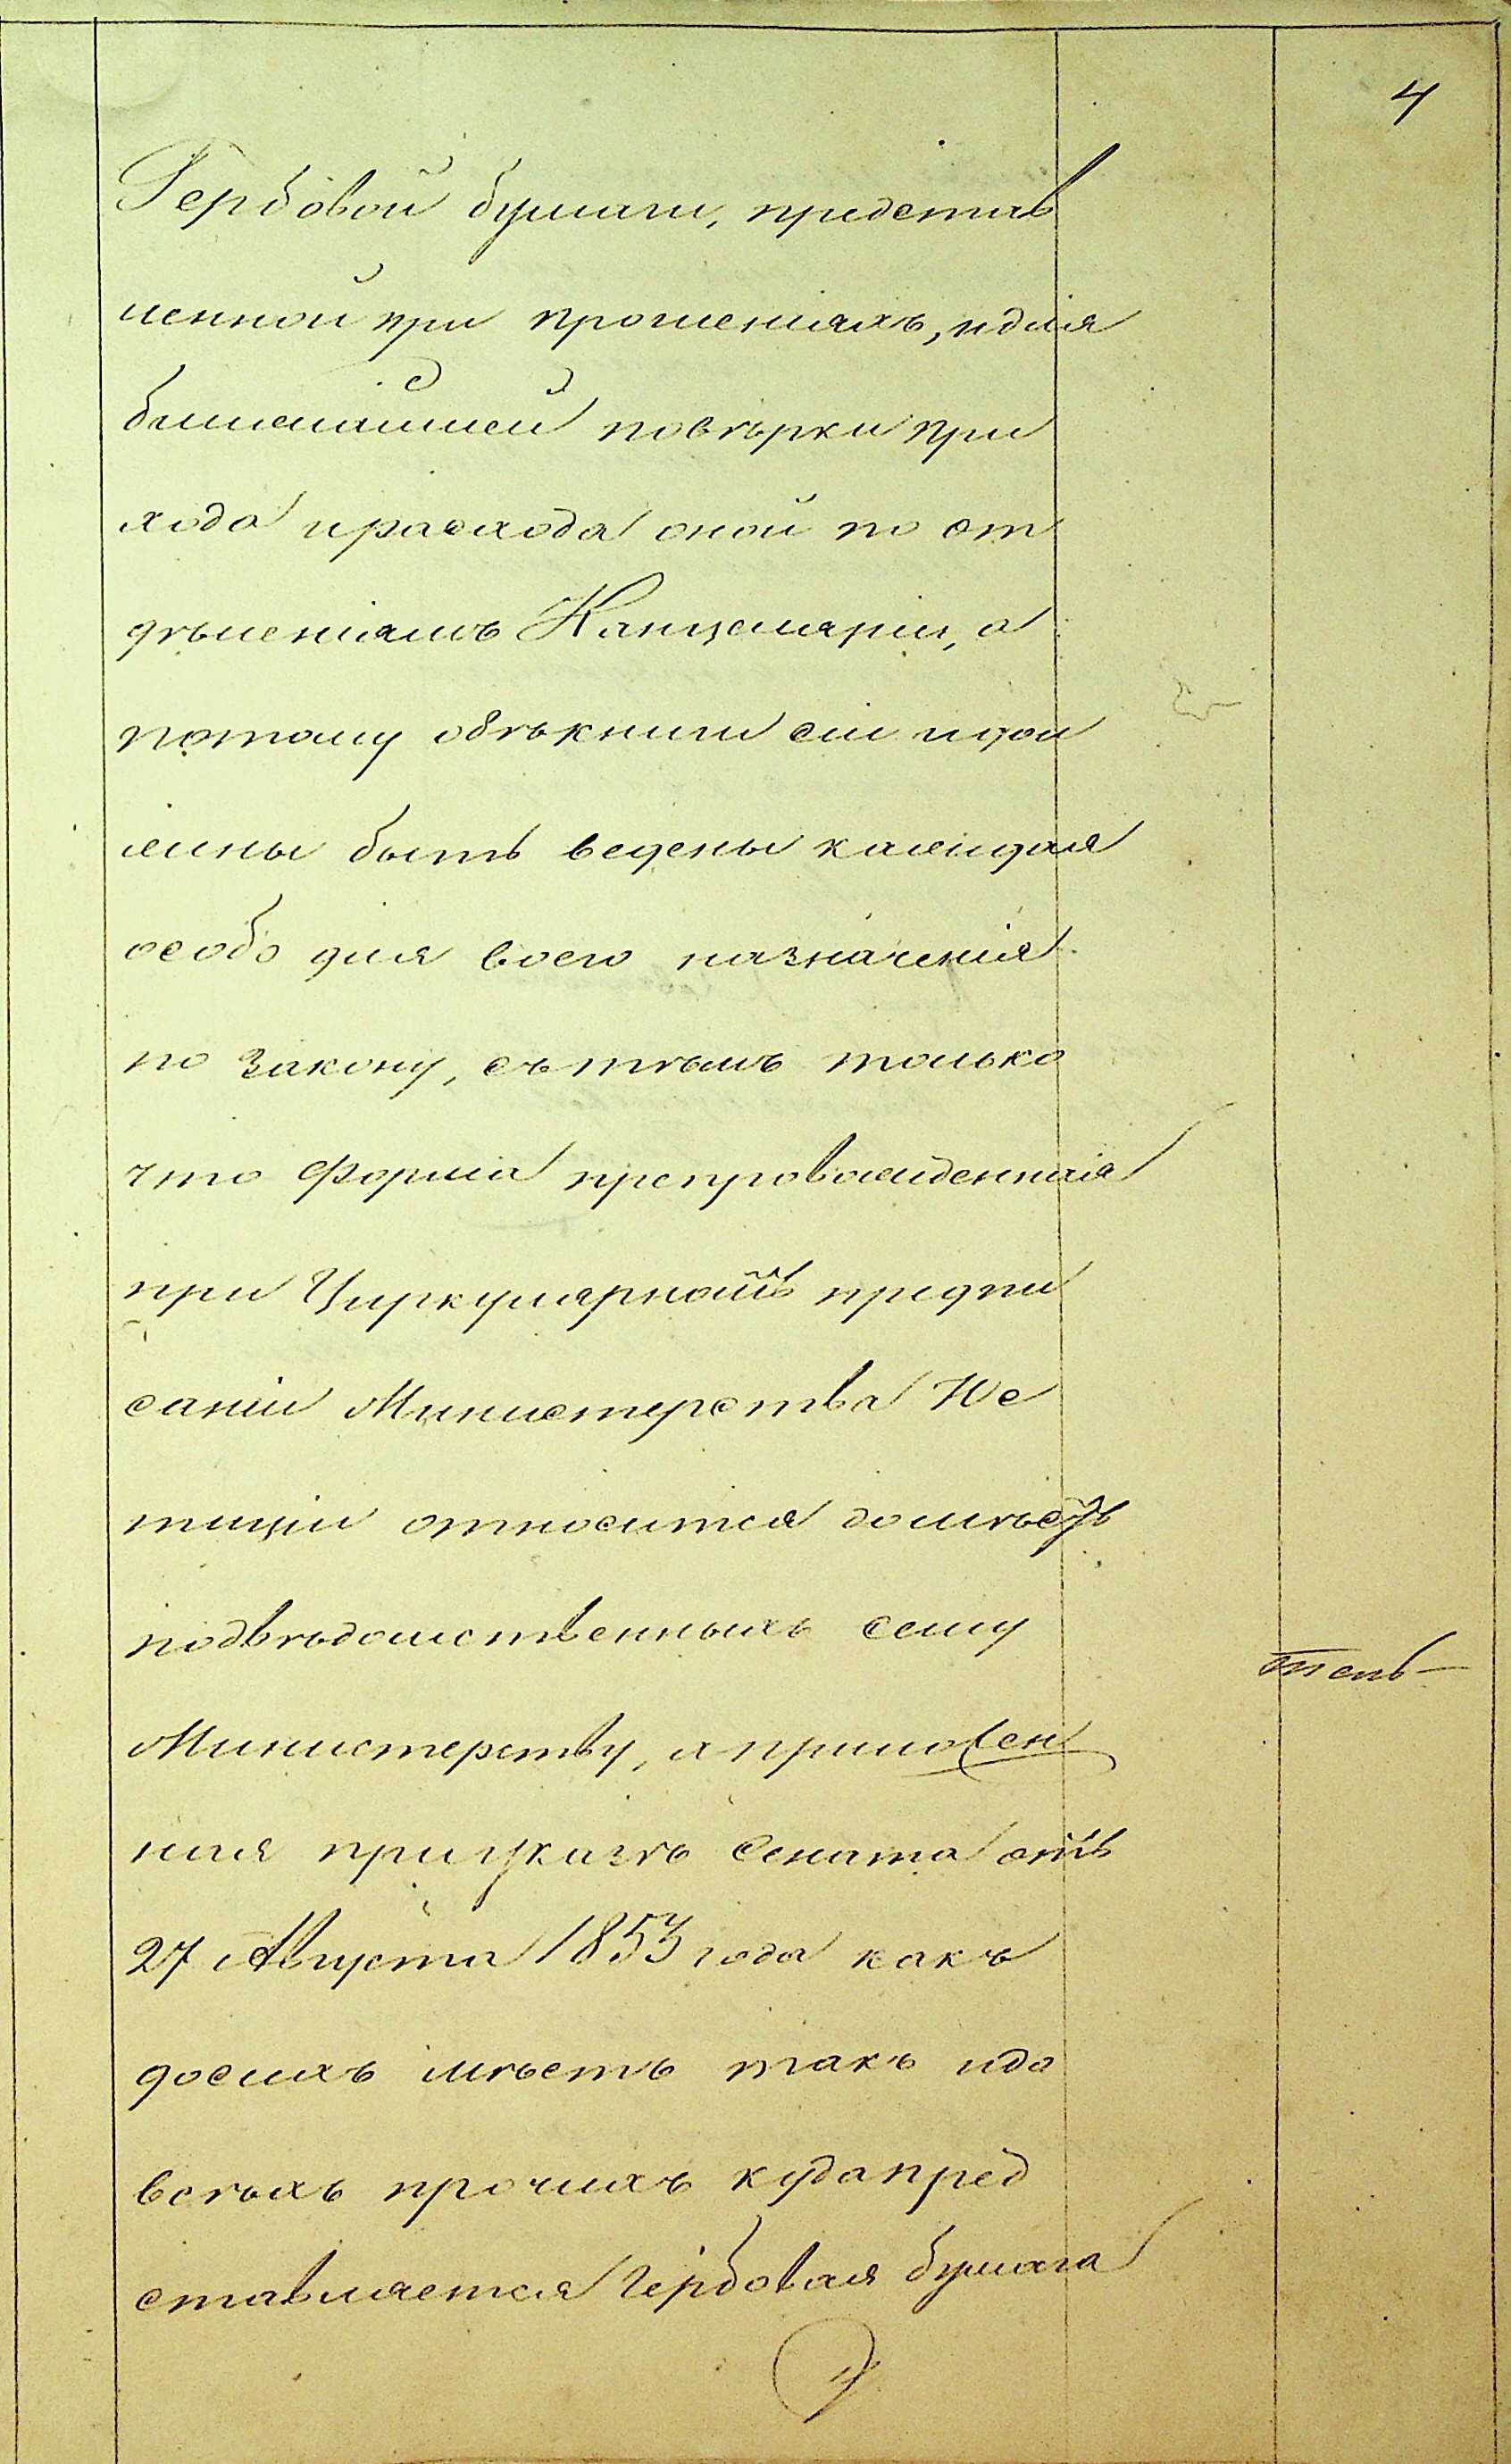 4
Гербовой бумаги, представ
ленной при прошеніяхъ, и для
ближайшей повѣрки при
хода и расхода оной по от
дѣленіямъ Канцеляріи, а
потому обѣ книги сіи и дол
жны быть ведены каждая
особо для своего назначенія
по закону, съ тѣмъ только
что форма препровожденная
при Циркулярномъ предпи
саніи Министерства Юс
тиціи относится до мѣстъ
подвѣдомственныхъ сему
Министерству, а приложен
ная при указѣ Сената отъ
27 Августа 1853 года какъ
до сихъ мѣстъ такъ и до
всѣхъ прочихъ куда пред
ставляется Гербовая бумага